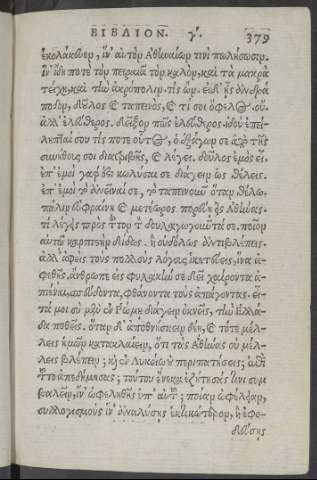 ΒΙΒΛΙΟΝ. γ'. 379
ἐκολάκευεν, ἵν' αὐτὸν Ἀθηναίων τινὶ πωλήσωσιν.
ἵν' ἴδῃ ποτὲ τὸν πειραιᾶ τὸν καλὸν, καὶ τὰ μακρὰ
τείχη, καὶ τὴν ἀκρόπολιν. τίς ὢν. εἰδῇς ἀνδρά
ποδον, δοῦλος καὶ ταπεινός, καὶ τί σοι ὄφελος. οὔ.
ἀλλ' ἐλεύθερος. δεῖξον πῶς ἐλεύθερος. ἰδοὺ ἐπεί-
ληπταί σου τίς ποτε οὗτος, ὁ ἐξάγων σε ἀπὸ τῆς
συνήθους σοι διατριβῆς, καὶ λέγει. δοῦλος ἐμὸς εἶ.
ἐπ' ἐμοὶ γάρ ἐστι κωλῦσαί σε διάγειν ὡς θέλεις.
ἐπ' ἐμοὶ τὸ ἀνεῖναί σε, τὸ ταπεινοῦν. ὅταν θέλω,
πάλιν εὐφραίνῃ καὶ μετέωρος πορεύῃ εἰς Ἀθήνας.
τί λέγεις πρὸς τοῦτον τὸν δουλαγωγοῦντά σε. ποῖον
αὐτῷ καρπιστὴν δίδως. ἢ οὐδ' ὅλως ἀντιβλέπεις.
ἀλλ' ἀφεὶς τοὺς πολλοὺς λόγους ἱκετεύεις, ἵνα ἀ-
φεθῇς. ἄνθρωπε εἰς φυλακήν σε δεῖ χαίροντα ἀ-
πιέναι, σπεύδοντα, φθάνοντα τοὺς ἀπάγοντας. εἶ-
τά μοι σὺ μὲν ἐν Ῥώμῃ διάγειν ὀκνεῖς, τὴν Ἑλλά-
δα ποθεῖς. ὅταν δ' ἀποθνήσκειν δέῃ, καὶ τότε μέλ-
λεις ἡμῶν κατακλαίειν, ὅτι τὰς Ἀθήνας οὐ μέλ-
λεις βλέπειν; καὶ ἐν Λυκείῳ οὐ περιπατήσεις; ἐπὶ
τοῦτο ἀπεδήμησας; τούτου ἕνεκα ἐζήτησάς τινι συμ
βαλεῖν, ἵν' ὠφεληθῇς ὑπ' αὐτοῦ; ποίαν ὠφέλειαν,
συλλογισμοὺς ἵν' ἀναλύσῃς ἑκτικώτερον, ἢ ἐφο-
δεύσῃς